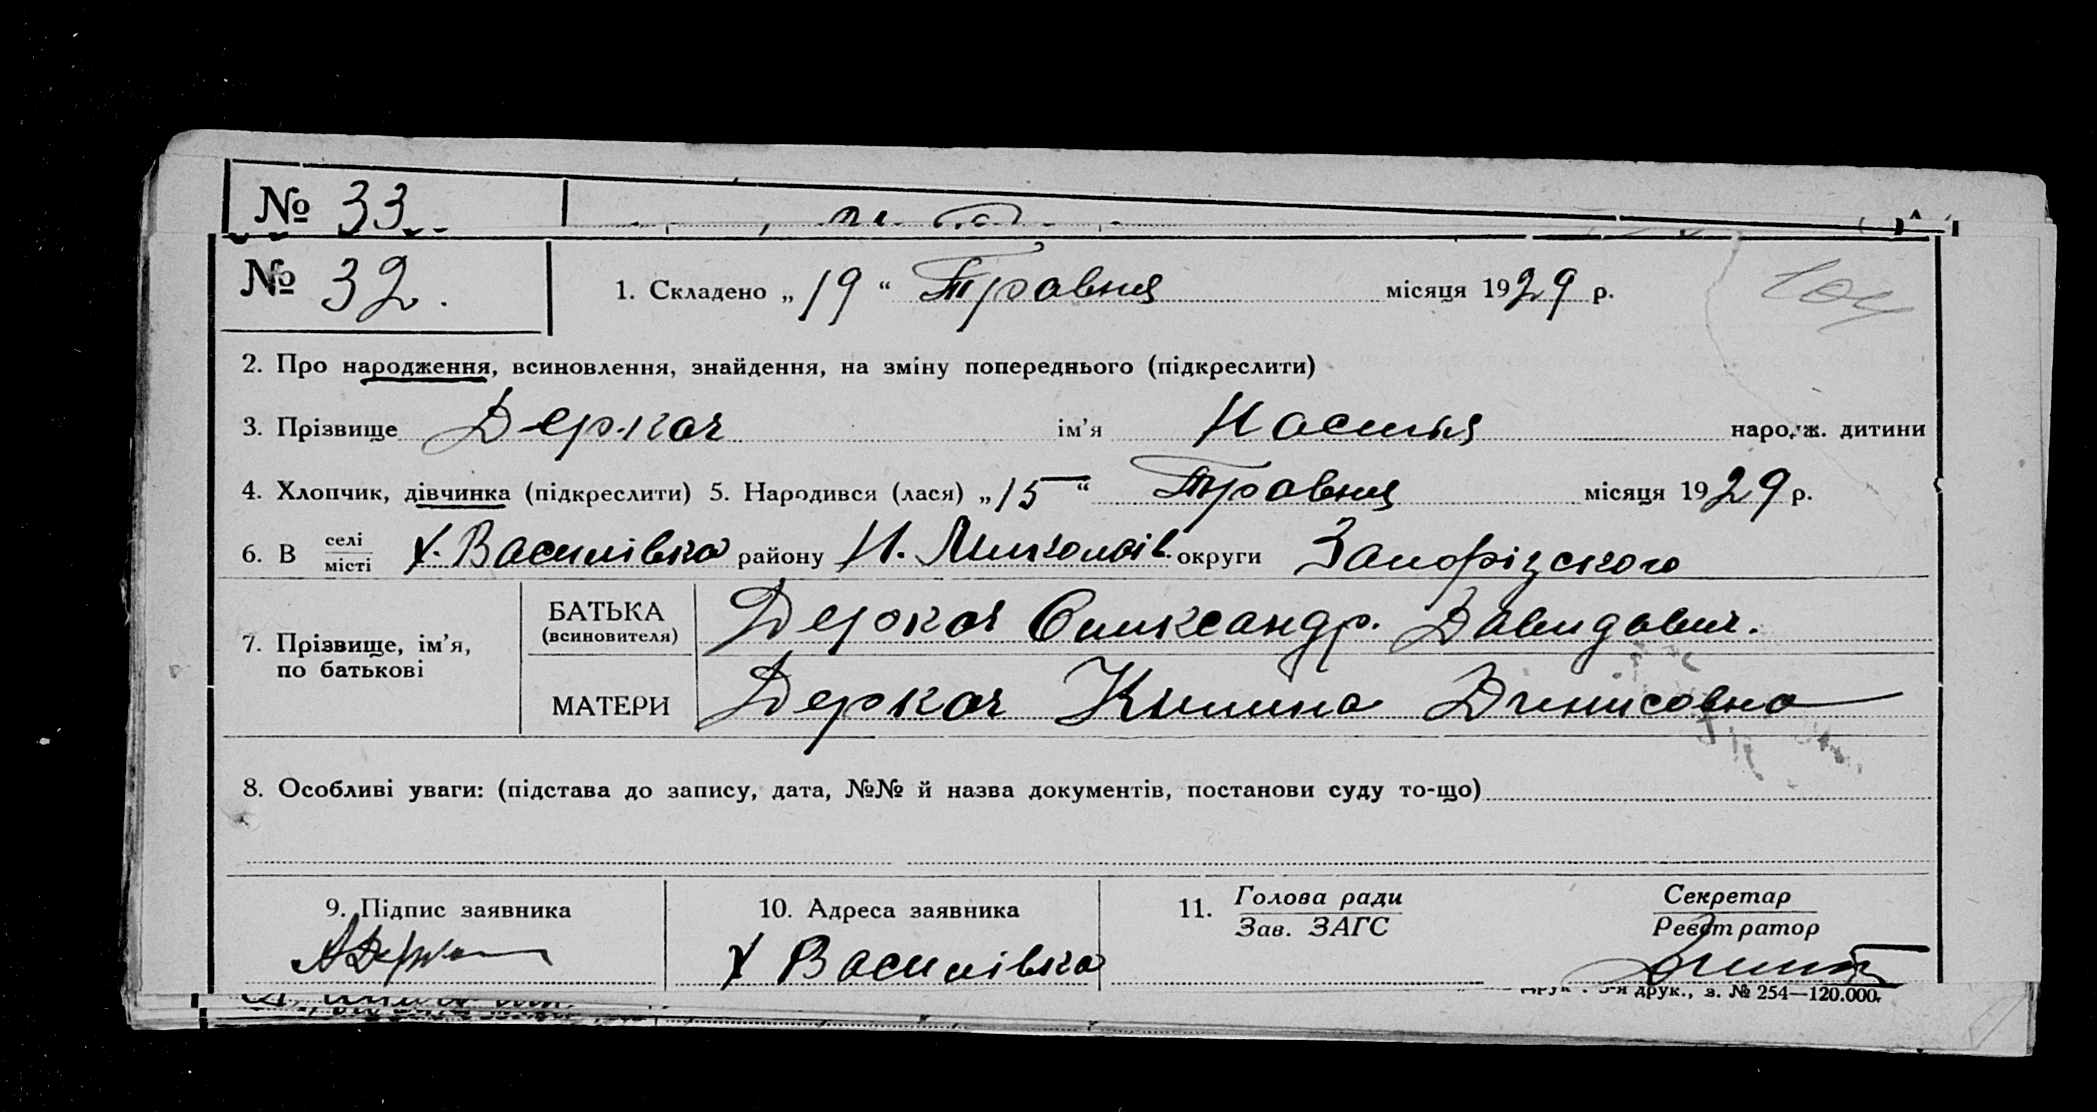 № 33
№ 32.
1. Складено „19“ Травня місяця 1929 р.
2. Про народження, всиновлення, знайдення, на зміну попереднього (підкреслити)
3. Прізвище Деркач ім’я Настья народж. дитини
4. Хлопчик, дівчинка (підкреслити) 5. Народився (лася) „15“ Травня місяця 1929 р.
6. В селі місті х. Василівка району Н. Миколаів. округи Запорізского
7. Прізвище, ім’я, по батькові
БАТЬКА (всиновителя) Деркач Олександр. Давидович.
МАТЕРИ Деркач Килина Денисовна
8. Особливі уваги: (підстава до запису, дата, №№ й назва документів, постанови суду то-що)
9. Підпис заявника 10. Адреса заявника 11. Голова ради Секретар
Зав. ЗАГС Реєстратор
х Василівка
друк., з. № 254—120.000.